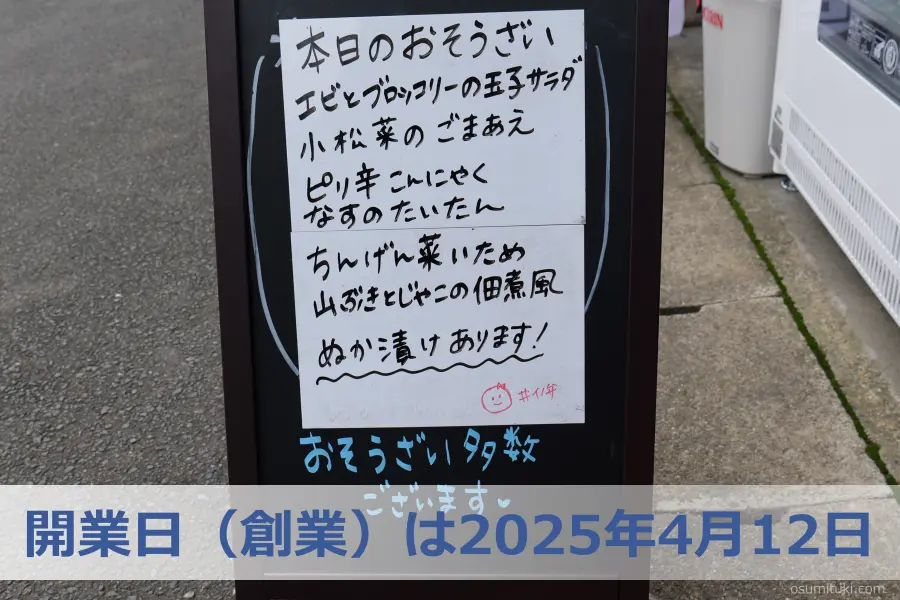 本日のおそうざい
エビとブロッコリーの玉子サラダ
小松菜のごまあえ
ピリ辛こんにゃく
なすのたいたん
ちんげん菜いため
山ぶきとじゃこの佃煮風
ぬか漬けあります!
おそうざい多数
ございます
開業日（創業）は2025年4月12日
KIRIN
osumituki.com